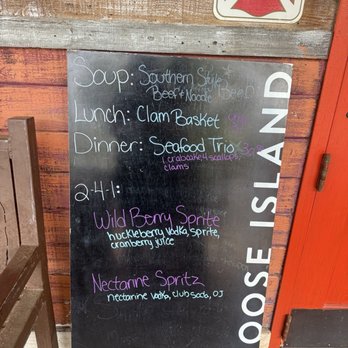 ISLAND
Soup: Southern Style
Beef & Noodle
Lunch: Clam Basket
Dinner: Seafood Trio
1 crabcake, 4 scallops,
clams
2-4-1:
Wild Berry Sprite
huckleberry vodka, sprite,
cranberry juice
Nectarine Spritz
nectarine vodka, club soda, OJ
OOSE ISLAND